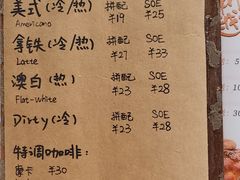 美式(冷/热) 拼配 SOE
Americano ¥19 ¥25
拿铁(冷/热) 拼配 SOE
Latte ¥27 ¥33
澳白(热) 拼配 SOE
Flat-White ¥23 ¥28
Dirty(冷) 拼配 SOE
¥23 ¥28
特调咖啡:
摩卡 ¥30